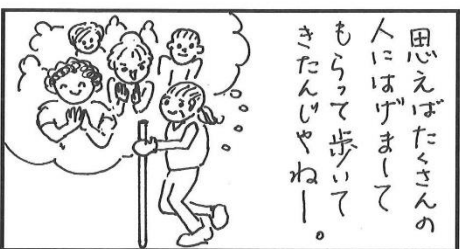 思えばたくさんの
人にはげまして
もらって歩いて
きたんじゃねー。